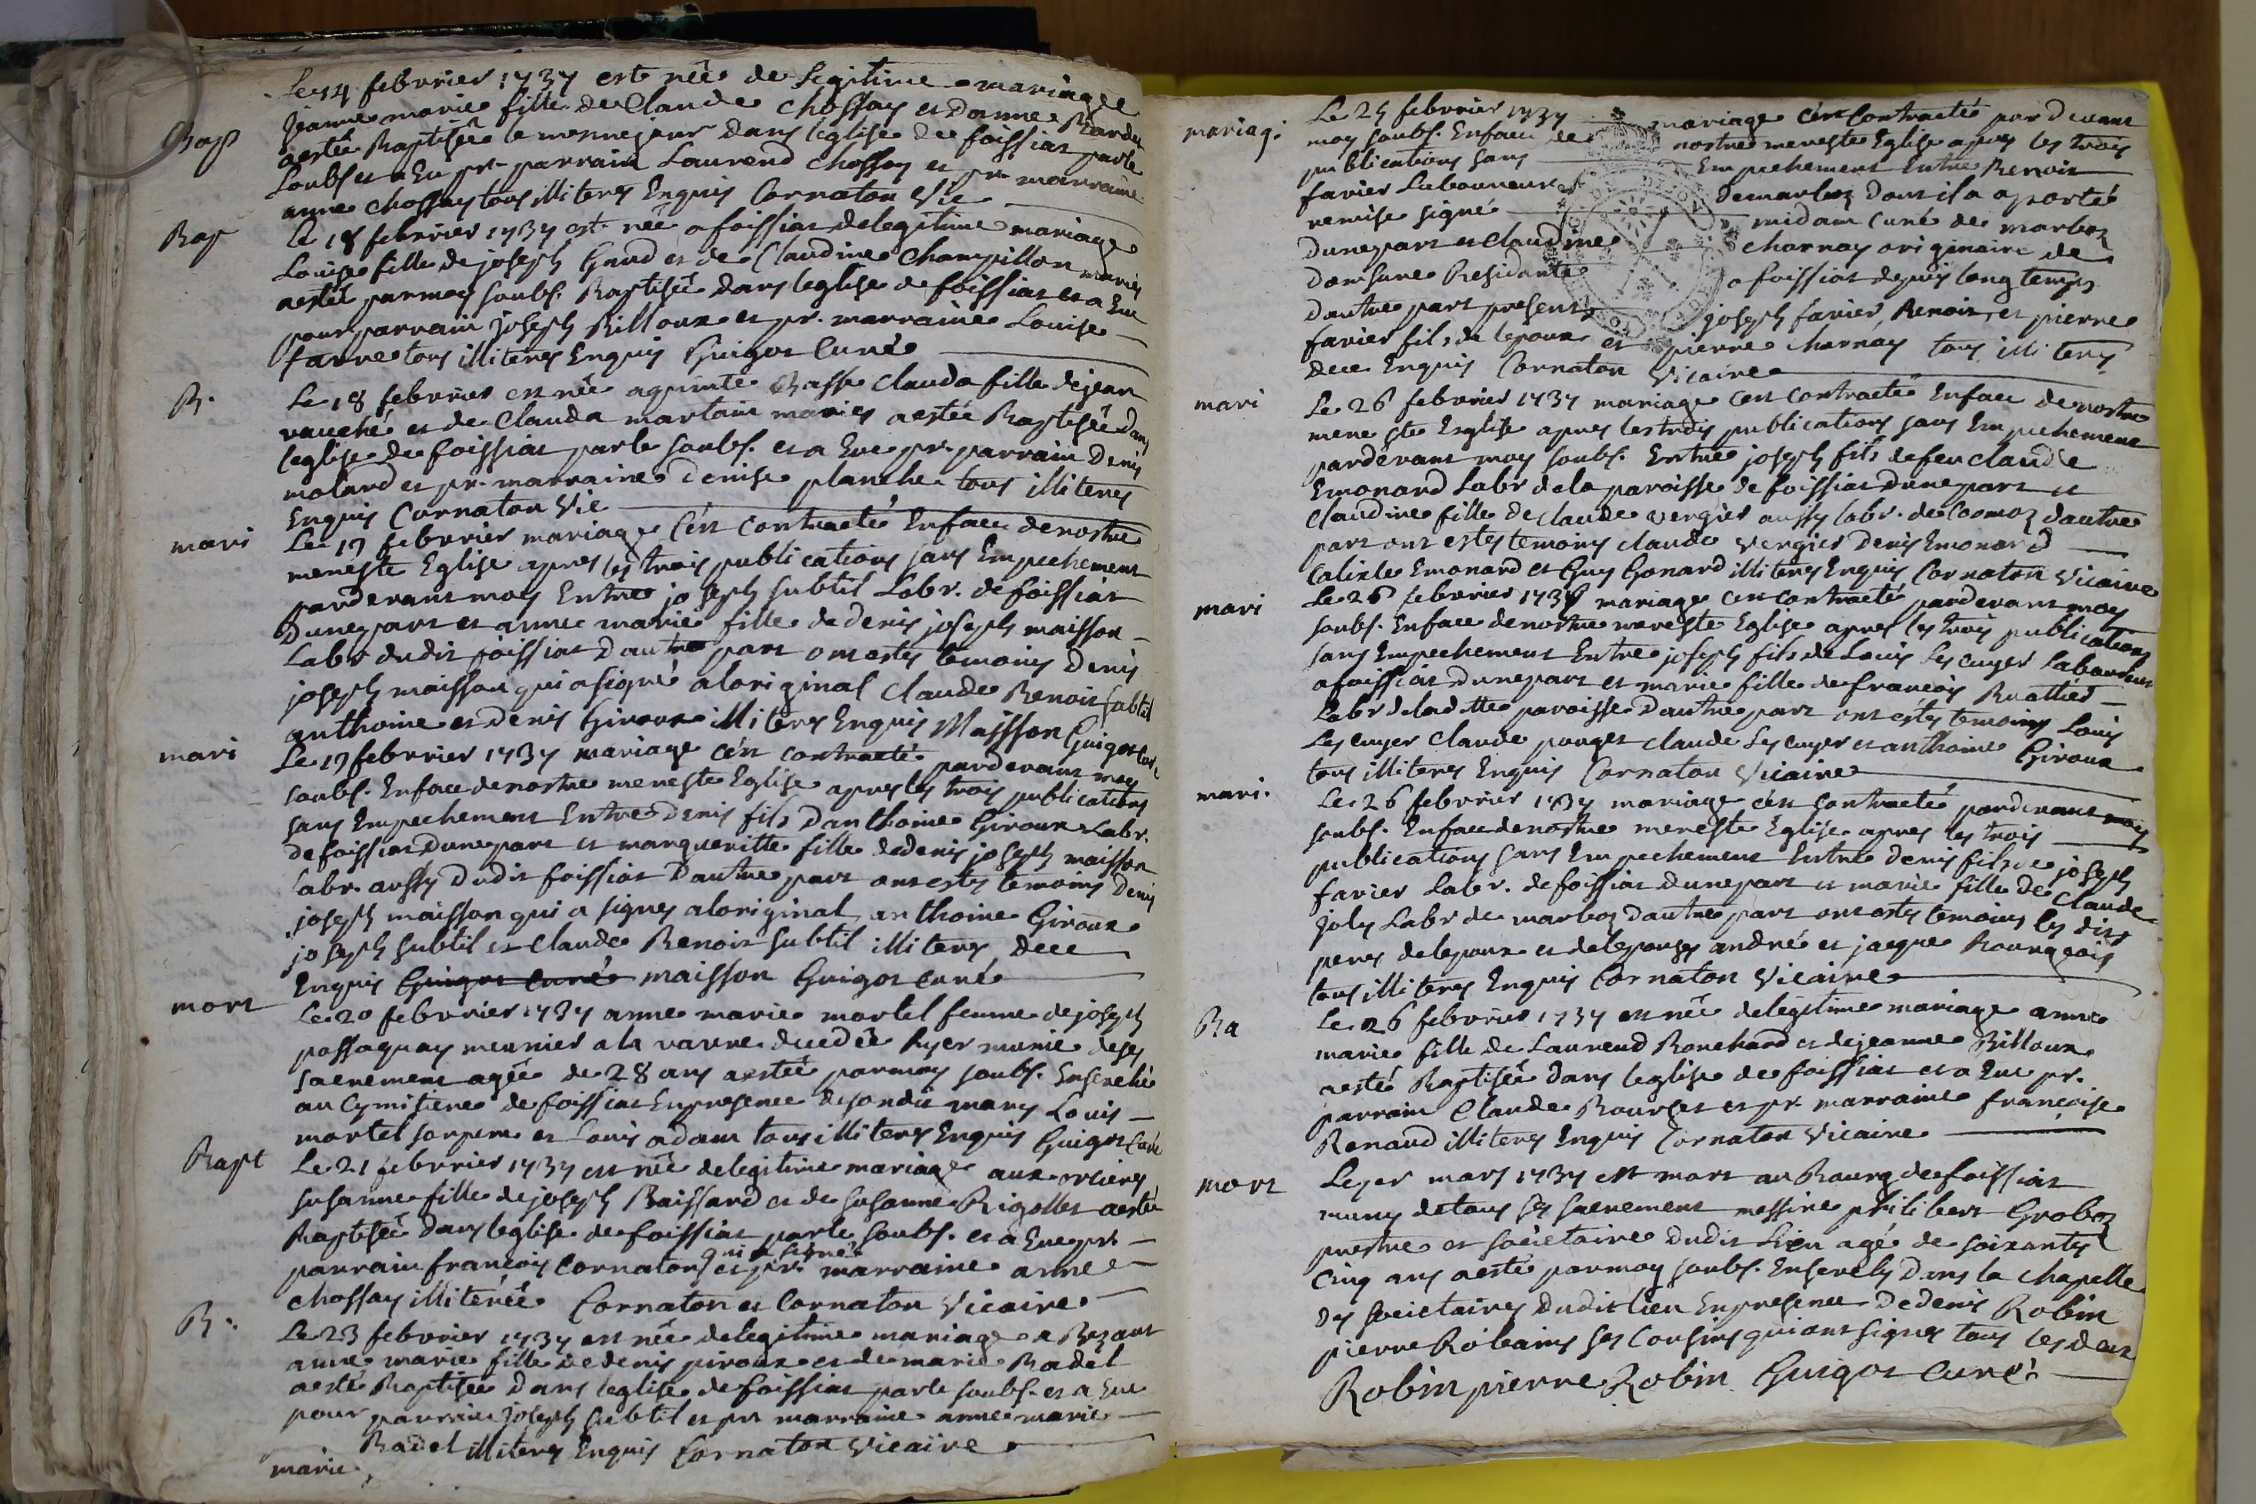 Le 14 febvrier 1737 est née de Legitime mariage
jeanne marie fille de Claude Chossay et danne
Bap aestée Baptisée le mesme jour dans leglise de foissiat par le
soubs. et a Eu pr. parrain Laurend Chossay et pr. marraine
anne Chossay tous illiteres Enquis Cornaton Vic
Bap Le 18 febvrier 1737 est née a foissiat de legitime mariage
Louise fille de joseph Gaud et de Claudine Champillon mariés
aestée par moy soubs. Baptisée dans leglise de foissiat et a Eu
pour parrain joseph Billoux et pr. marraine Louise
favre tous illiteres Enquis Guigot Curé
B. Le 18 febvrier est née a Basse Clauda fille de jean
vauché et de Clauda martain mariés aestée Baptisée dans
leglise de foissiat par le soubs. et a Eu pr. parrain Denis
molard et pr. marraine denise planche tous illiteres
Enquis Cornaton Vic
mari Le 19 febvrier mariage c'est contracté Enface de nostre
mere ste Eglise apres les trois publications sans Empechement
pardevant moy Entre joseph subtil Labr. de foissiat
dune part et anne marie fille de denis joseph maisson
Labr dudit foissiat dautre part ont estes temoins Denis
joseph maisson qui a signé a loriginal Claude Benoit subtil
anthoine et denis Giroux illiteres Enquis Maisson Guigot Curé
mari Le 19 febvrier 1737 mariage c'est contracté pardevant moy
soubs. Enface de nostre mere ste Eglise apres les trois publications
sans Empechement Entre Denis fils danthoine Giroux Labr.
de foissiat dune part et margueritte fille de denis joseph maisson
labr. aussy dudit foissiat dautre part ont estes temoins Denis
joseph maisson qui a signes a loriginal anthoine Giroux
joseph subtil et Claude Benoit subtil illiteres dece
Enquis Guigot Curé maisson Guigot Curé
mort Le 20 febvrier 1737 anne marie mortel femme de joseph
passaquay meunier a la varne decedée hyer munie de ses
sacrement agée de 28 ans aestée par moy soubs. Ensevelie
au Cymitiere de foissiat En presence de son dit mary Louis
mortel son pere et Louis adam tous illiteres Enquis Guigot Curé
Bapt Le 21 febvrier 1737 est née de legitime mariage aux
susanne fille de joseph Baissard et de susanne Rigollet aestée
Baptisée dans leglise de foissiat par le soubs. et a Eu pr.
parrain françois Cornaton qui a signé et pr. marraine anne
Chossay illiterée Cornaton et Cornaton Vicaire
B. Le 23 febvrier 1737 est née de legitime mariage a
anne marie fille de denis piroux et de marie Badel
aestée Baptisée dans leglise de foissiat par le soubs. et a Eu
pour parrain joseph subtil et pr marraine anne marie
Badel illiteres Enquis Cornaton Vicaire
marie
mariag. Le 25 febvrier 1737 mariage c'est Contracté pardevant
moy soubs. Enface de nostre mere ste Eglise apres les trois
publications sans Empechement Entre Benoit
favier Laboureur de marboz dont il a aporté
remise signé midam Curé de marboz
dune part et Claudine Charnay originaire de
domsure Residante a foissiat depuis long temps
dautre part presents joseph favier, Benoit, et pierre
favier fils de lepoux et pierre Charnay tous illiteres
dece Enquis Cornaton Vicaire
mari Le 26 febvrier 1737 mariage c'est contracté Enface de nostre
mere ste Esglise apres les trois publications sans Empechement
pardevant moy soubs. Entre joseph fils de feu Claude
Emonard Labr de la paroisse de foissiat dune part et
Claudine fille de Claude vergier aussy labr. de Cormoz dautre
part ont estes temoins Claude vergier Denis Emonard
Calixte Emonard et Guy Gonard illiteres Enquis Cornaton Vicaire
mari Le 26 febvrier 1737 mariage c'est contracté pardevant moy
soubs. Enface de nostre mere ste Eglise apres les trois publications
sans Empechement Entre joseph fils de Louis Lescuyer Laboureur
a foissiat dune part et marie fille de françois Buathier
Labr de ladtte paroisse dautre part ont estes temoins Louis
Lescuyer Claude ponget Claude Lescuyer et anthoine Giroux
tous illiteres Enquis Cornaton Vicaire
mari. Le 26 febvrier 1737 mariage c'est contracté pardevant moy
soubs. Enface de nostre mere ste Eglise apres les trois
publications sans Empechement Entre denis fils de joseph
favier Labr. de foissiat dune part et marie fille de Claude
joly Labr de marboz dautre part ont estes temoins les dits
peres de lepoux et de lepouse andré et jacque Bourgeois
tous illiteres Enquis Cornaton Vicaire
Ba Le 26 febvrier 1737 est née de legitime mariage anne
marie fille de Laurend Bouchard et de jeanne Billoux
aestée Baptisée dans leglise de foissiat et a Eu pr.
parrain Claude Bourset et pr marraine françoise
Renaud illiteres Enquis Cornaton Vicaire
mort Le 1er mars 1737 est mort au Bourg de foissiat
muny de tous ses sacrement messire philibert Groboz
prestre et societaire dudit Lieu agé de soixante
Cinq ans aesté par moy soubs. Ensevely dans la Chapelle
des societaires dudit lieu En presence de denis Robin
pierre Robains ses Cousins qui ont signes tous les deux
Robin pierre Robin Guigot Curé